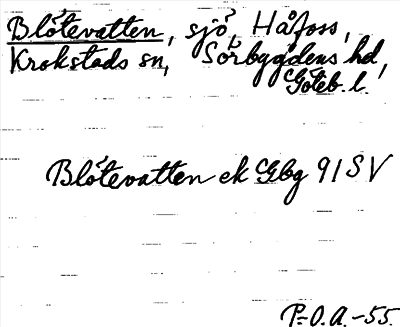 Blötevatten, sjö, Håfoss,
Krokstads sn, Sörbygdens hd,
Göteb. l.
Blötevatten ek Gbg 91 SV
P-O.A. -55.